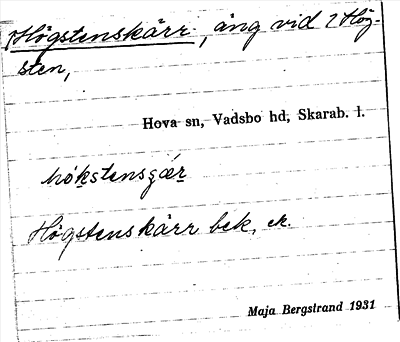 Högstenskärr, äng vid 2 Hög-
sten,
Hova sn, Vadsbo hd, Skarab. l.
Högstenskärr bek, ek.
Maja Bergstrand 1931